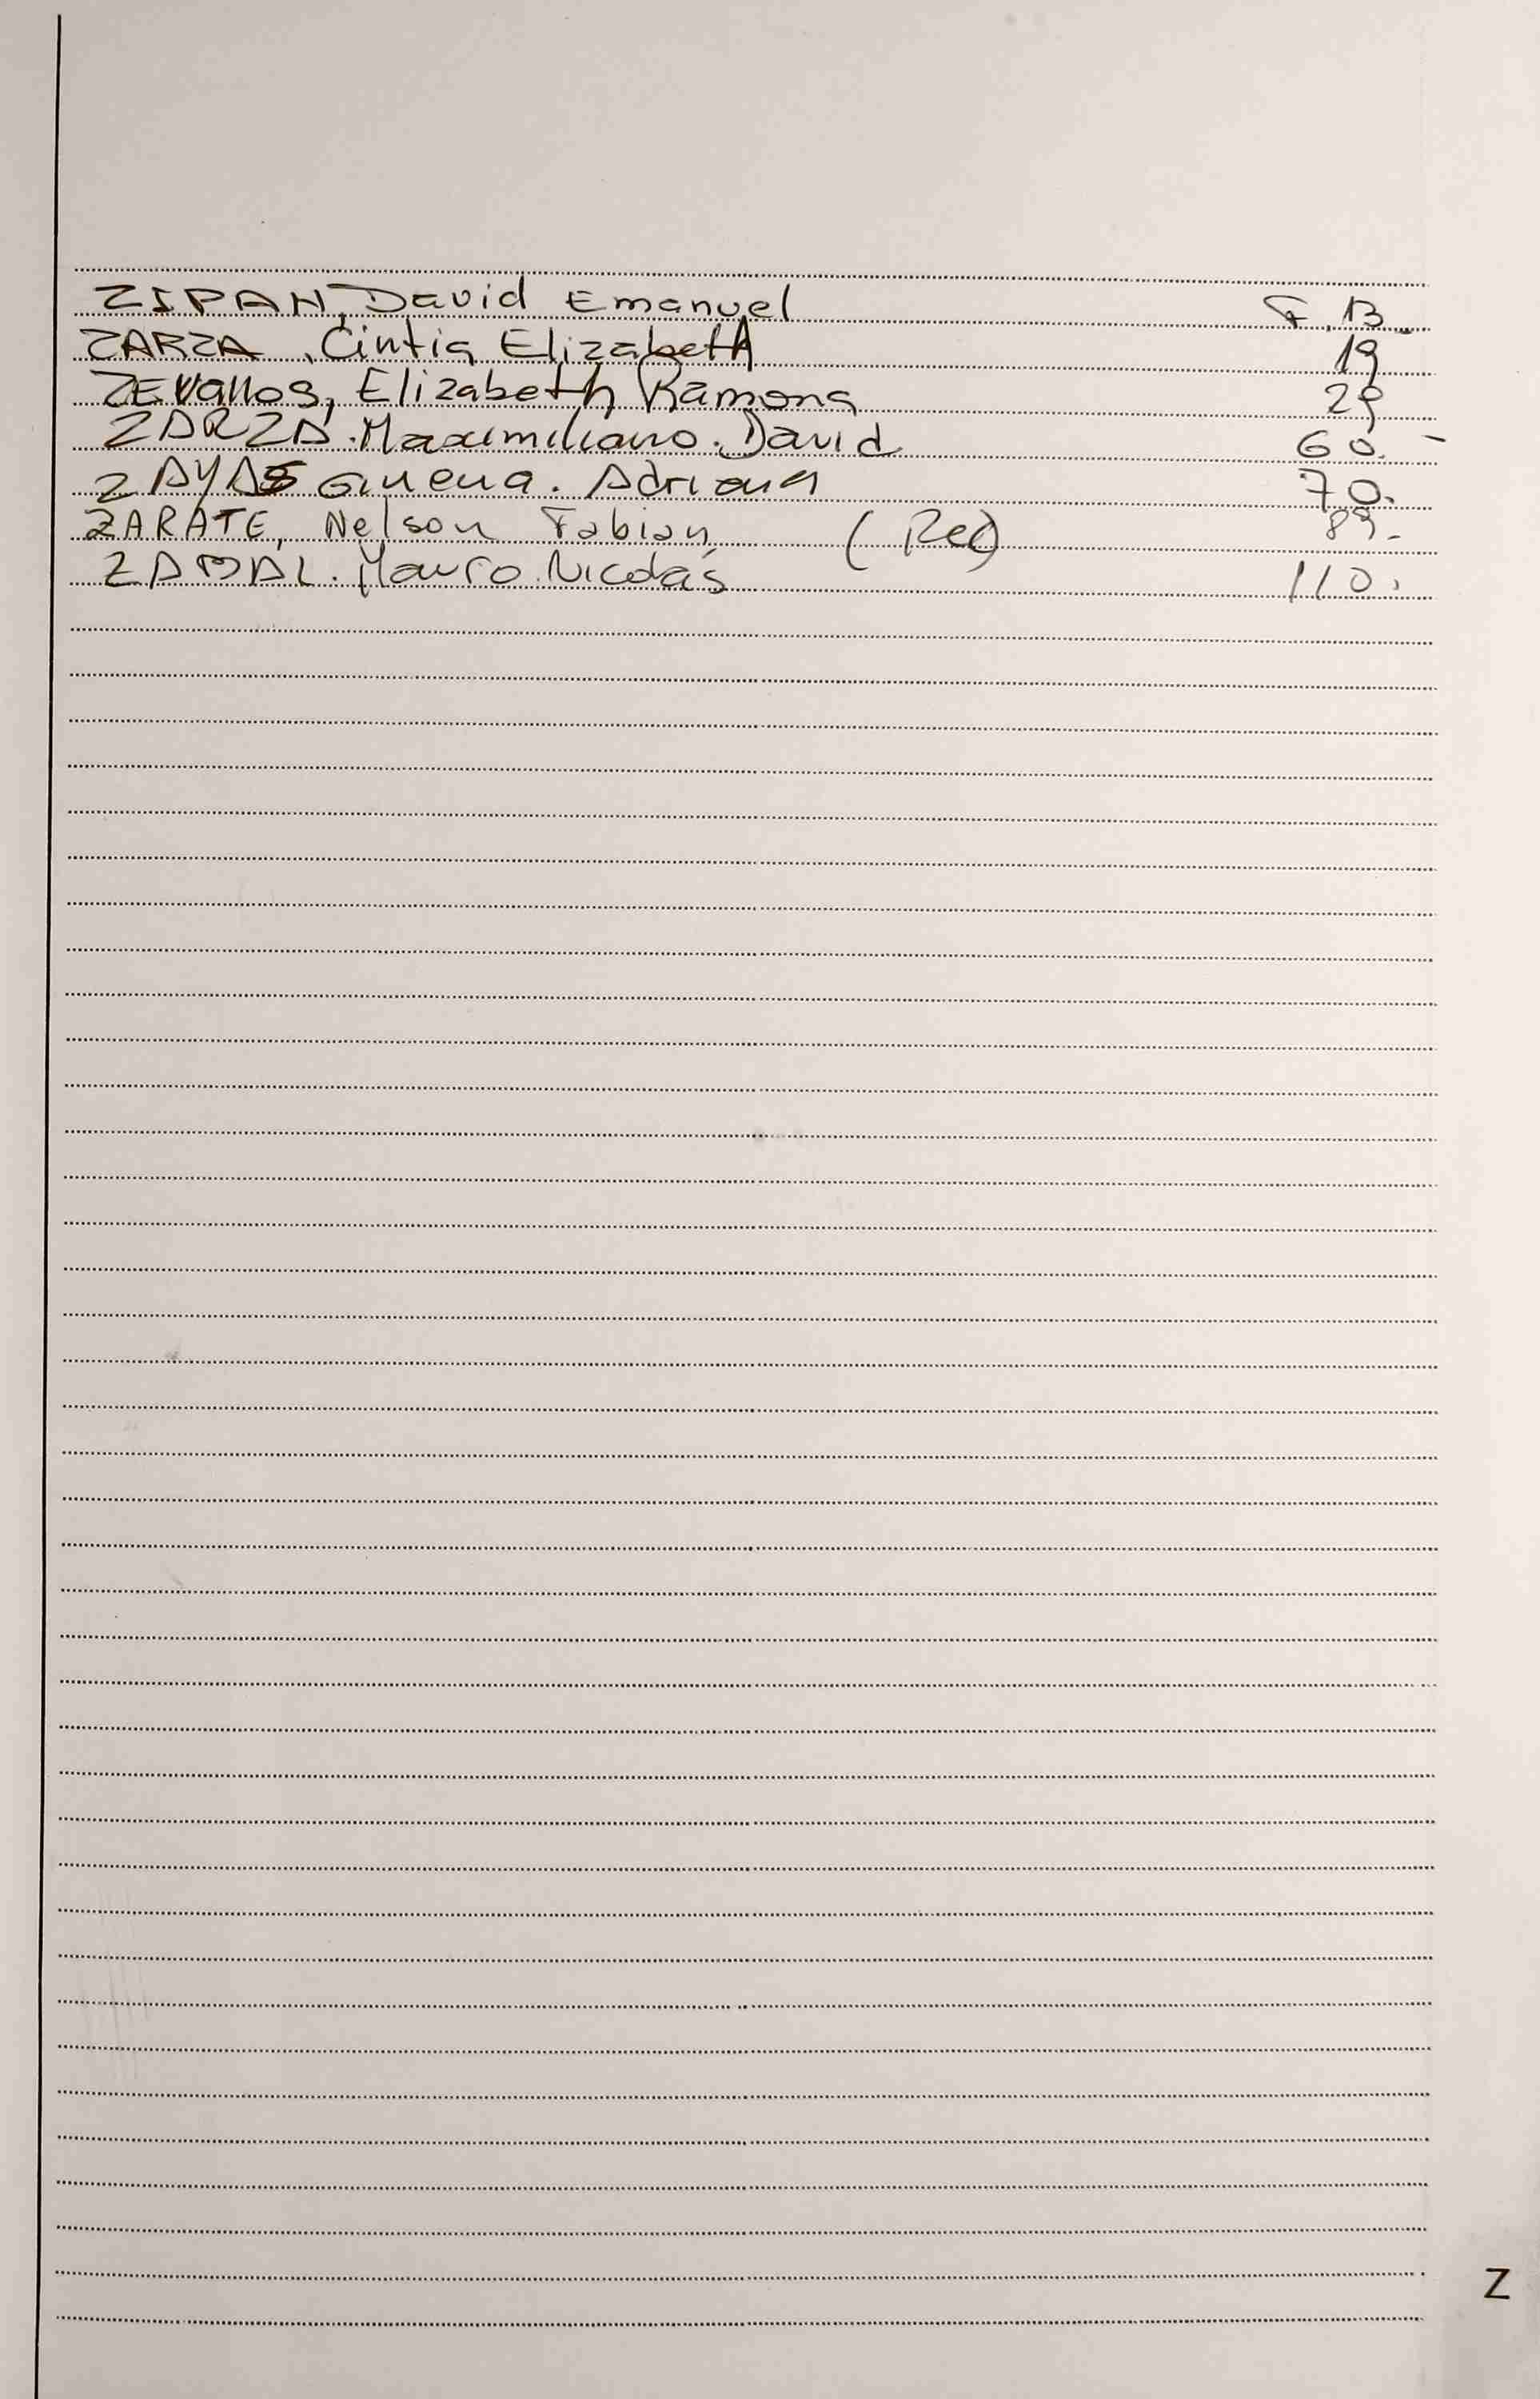 ZIPAN, David Emanuel F. 13 -
ZARZA, Cintia Elizabeth 19
ZEVallos, Elizabeth Ramona 29
ZARZA. Maximiliano. David 60. -
ZAYAS Gimena. Adriana 70.
ZARATE, Nelson Fabian (Rec) 89.-
Mauro. Nicolás 110.
Z